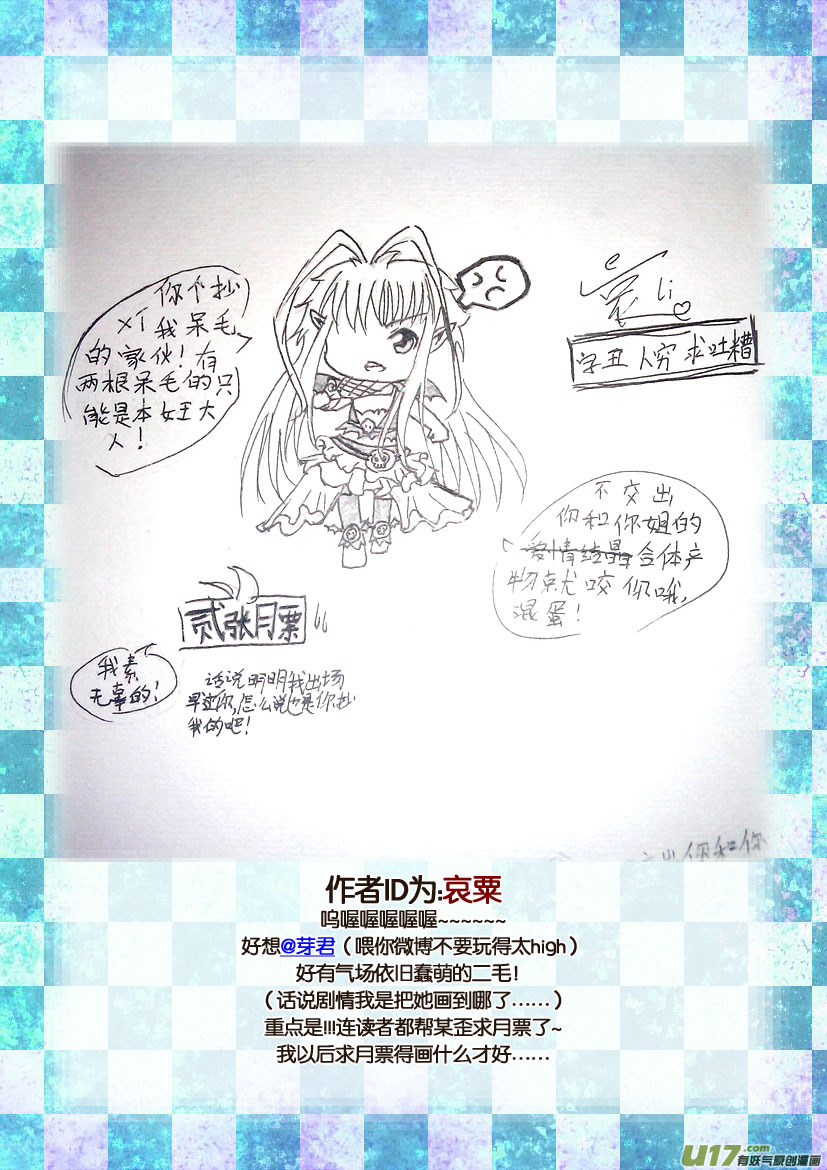 你个抄
×丁我呆毛
的家伙！有
两根呆毛的只
能是本女王大
人！
哀li
字丑人穷求吐糟
不交出
你和你姐的
爱情结晶合体产
物就咬你哦，
混蛋！
贰张月票
我素
无辜的！
话说明明我出场
早过你，怎么说也是你抄
我的吧！
你和你
作者ID为:哀粟
呜喔喔喔喔喔~~~~~~
好想@芽君（喂你微博不要玩得太high）
好有气场依旧蠢萌的二毛！
（话说剧情我是把她画到哪了……）
重点是!!!连读者都帮某歪求月票了~
我以后求月票得画什么才好……
U17.com
有妖气原创漫画